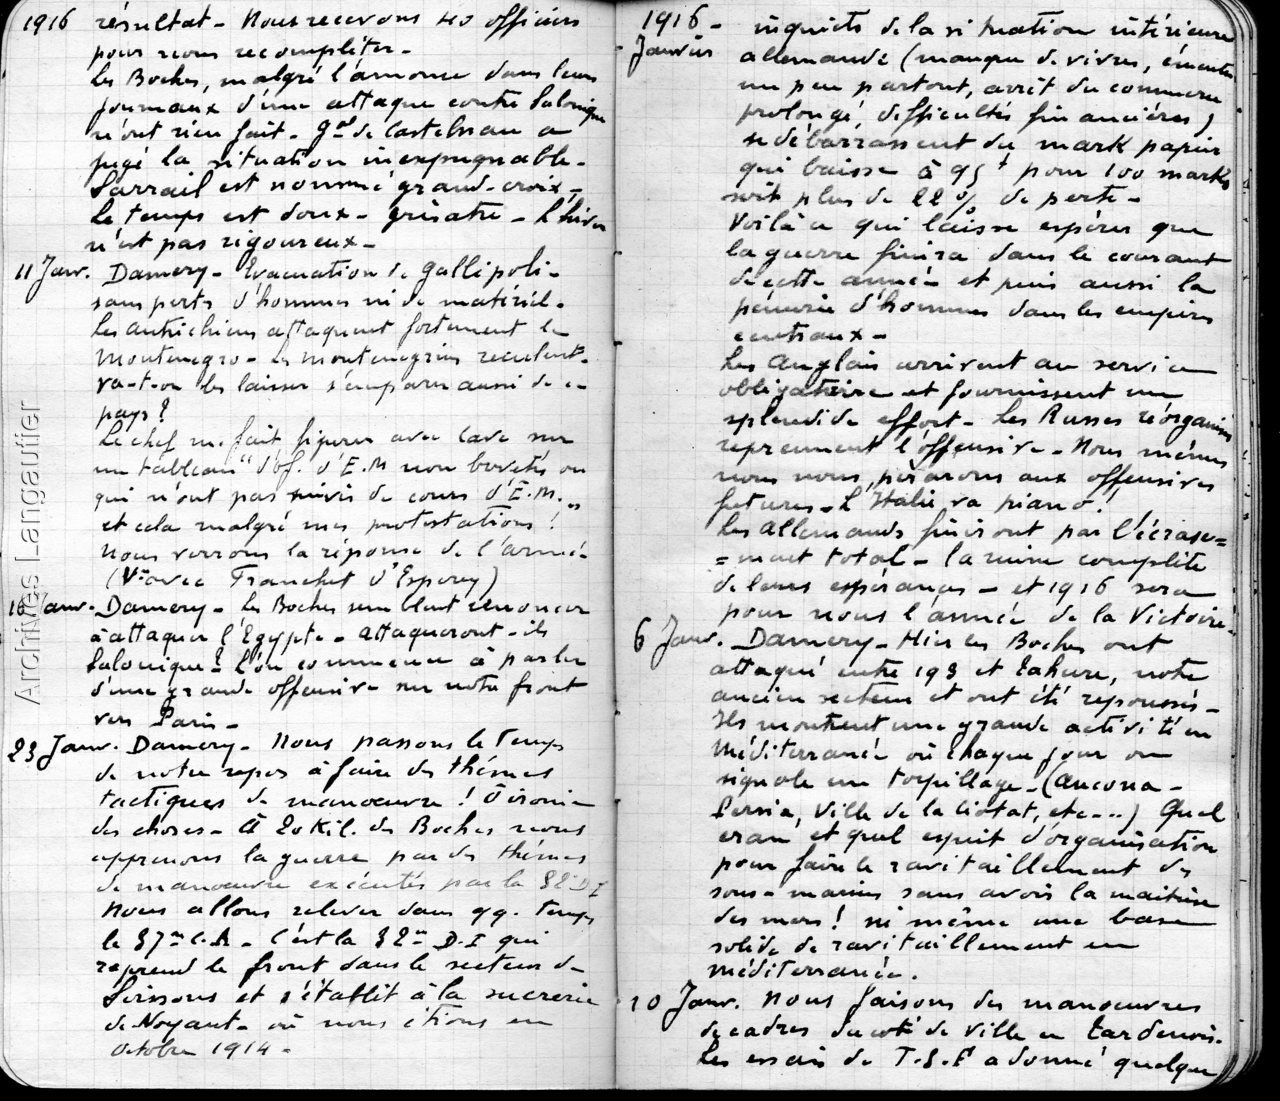 1916 résultat - Nous recevons 40 officiers
pour nous recompléter -
Les Boches, malgré l'annonce dans leurs
journaux d'une attaque contre Salonique
n'ont rien fait - Gal de Castelnau a
jugé la situation inexpugnable -
Sarrail est nommé grand-croix -
Le temps est doux - grisatre - L'hiver
n'est pas rigoureux -
11 Janv. Damery - Evacuation de Gallipoli -
sans perte d'hommes ni de matériel -
Les autrichiens attaquent fortement le
Montenegro - Les Montenegrins reculent -
va-t-on les laisser s'emparer aussi de ce
pays ?
Le chef me fait figurer avec Cave sur
un tableau " d'of. d'E.M non brevetés ou
qui n'ont pas suivis de cours d'E.M. "
et cela malgré mes protestations !
Nous verrons la réponse de l'armée
(Ve avec Franchet d'Esperey)
Janv. Damery - Les Boches semblent renoncer
à attaquer l'Egypte - Attaqueront-ils
Salonique ? L'on commence à parler
d'une grande offensive sur notre front
vers Paris -
23 Janv. Damery - Nous passons le temps
de notre repos à faire des thémes
tactiques de manoeuvre ! O ironie
des choses - A 20 Kil. des Boches nous
apprenons la guerre par des thémes
de manoeuvre exécutés par la 82e D I
Nous allons relever dans qq. temps
le 37me C.A - C'est la 82me D.I qui
reprend le front dans le secteur de
Soissons et s'établit à la sucrerie
de Noyant - où nous étions en
Octobre 1914 -
1916 - inquiets de la situation intérieure
Janvier allemande (manque de vivres, émeutes
un peu partout, arrêt du commerce
prolongé, difficultés financières)
se débarrassent du mark papier
qui baisse à 95f pour 100 marks
soit plus de 22 % de perte -
Voilà ce qui laisse espérer que
la guerre finira dans le courant
de cette année et puis aussi la
pénurie d'hommes dans les empires
centraux -
Les Anglais arrivent au service
obligatoire et fournissent un
splendide effort - Les Russes réorganisés
reprennent l'offensive - Nous mêmes
nous nous préparons aux offensives
futures - L'Italie va piano !
Les Allemands finiront par l'écrase=
=ment total - la ruine complète
de leurs espérances - et 1916 sera
pour nous l'année de la Victoire -
6 Janv. Damery - Hier les Boches ont
attaqué entre 193 et Tahure, notre
ancien secteur et ont été repoussés -
Ils montrent une grande activité en
Méditerranée où chaque jour on
signale un torpillage - (Ancona -
Persia, Ville de la Ciotat, etc...) Quel
cran, et quel esprit d'organisation
pour faire le ravitaillement des
sous-marins sans avoir la maitrise
des mers ! ni même une base
solide de ravitaillement en
méditerranée.
10 Janv. Nous faisons des manoeuvres
de cadres du coté de Ville en Tardenois.
Les essais de T.S.F a donné quelque
Archives Langautier